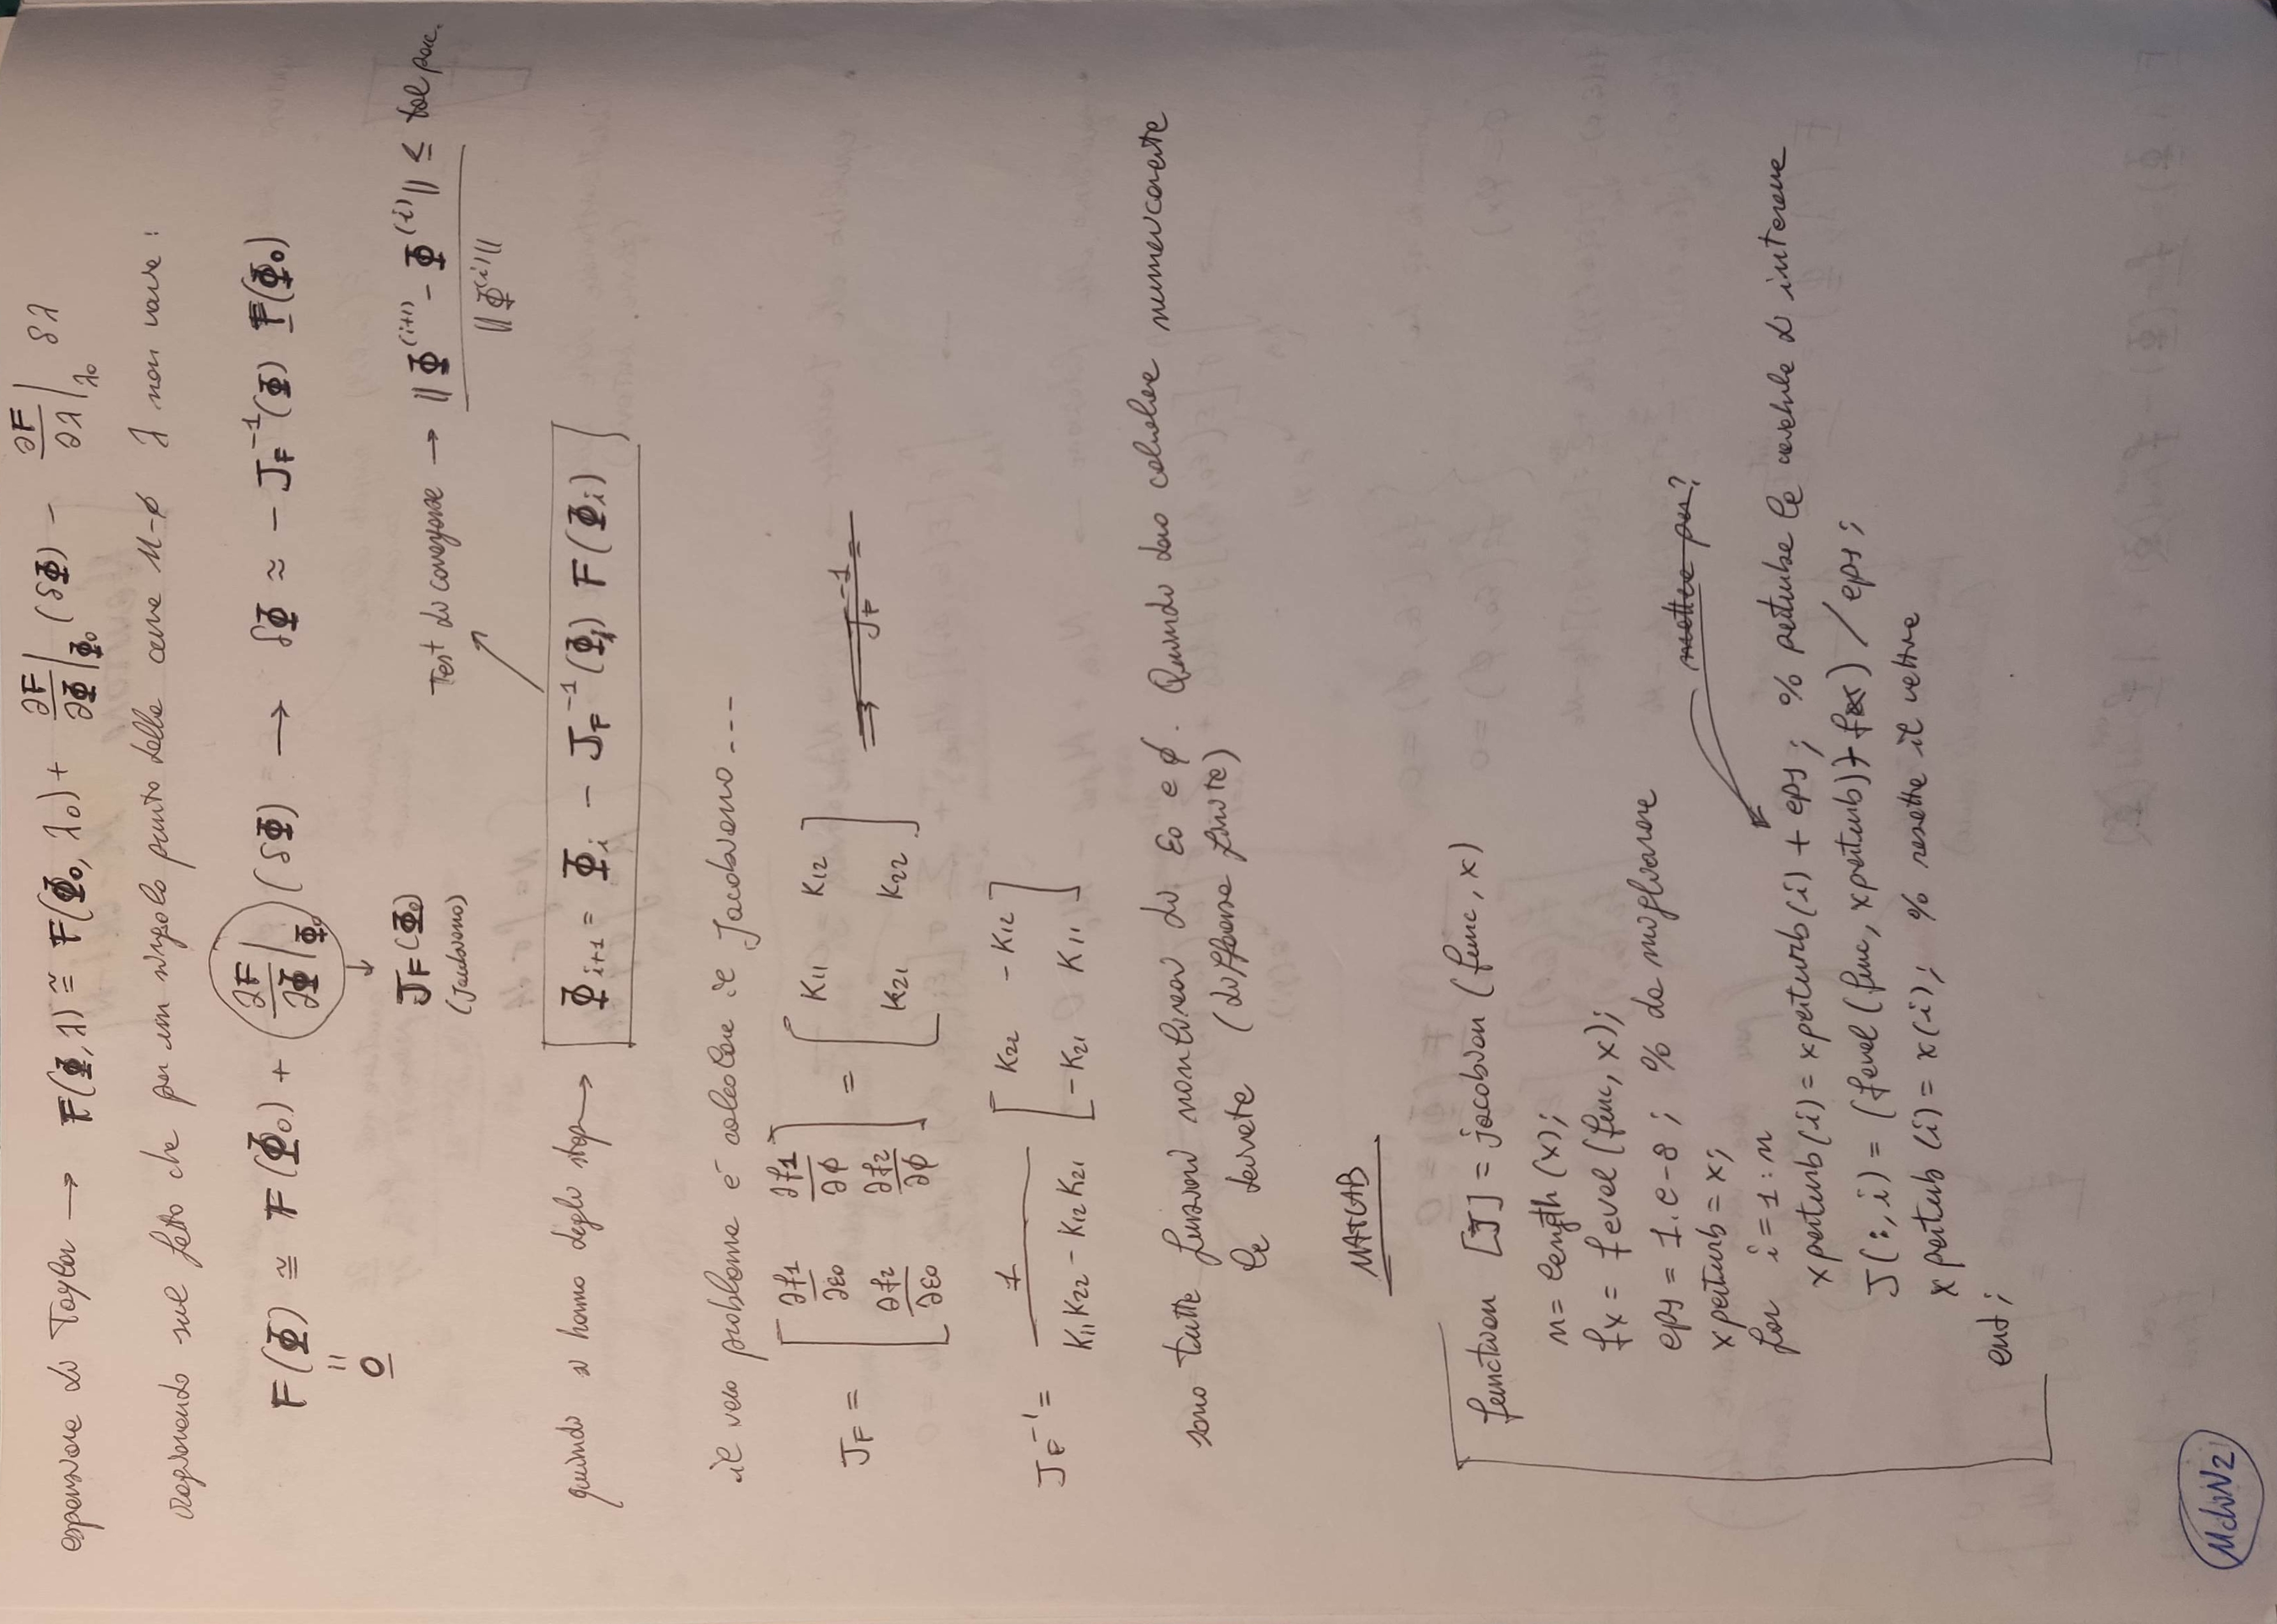 espansione di Taylor → F(Φ, λ) ≅ F(Φ₀, λ₀) + ∂F/∂Φ|Φ₀ (δΦ) − ∂F/∂λ|λ₀ δλ
ragionando sul fatto che per un singolo punto della curva M-φ λ non varia :
F(Φ) ≅ F(Φ₀) + (∂F/∂Φ|Φ₀) (δΦ) → δΦ ≈ − J_F⁻¹(Φ) F(Φ₀)
=
0
↓
J_F(Φ₀)
(Jacobiano)
Test di convergenza → ‖Φ^(i+1) − Φ^(i)‖ / ‖Φ^(i)‖ ≤ tol
quindi si hanno degli step → Φ_i+1 = Φ_i − J_F⁻¹(Φ_i) F(Φ_i)
il vero problema é calcolare il Jacobiano ---
J_F = [ ∂f1/∂ε0 ∂f1/∂φ ; ∂f2/∂ε0 ∂f2/∂φ ] = [ K11 K12 ; K21 K22 ] ⇒ J_F⁻¹ =
J_F⁻¹ = 1 / (K11 K22 − K12 K21) [ K22 −K12 ; −K21 K11 ]
sono tutte funzioni non lineari di ε0 e φ. Quindi devo calcolare numericamente
le derivate (differenze finite)
MATLAB
function [J] = jacobian (func, x)
n = length (x);
fx = feval (func, x);
eps = 1.e-8 ; % da migliorare
xperturb = x;
mettere per?
for i = 1 : n
xperturb(i) = xperturb(i) + eps ; % perturba la variabile di interesse
J(:, i) = (feval (func, xperturb) - fx) / eps ;
xperturb (i) = x(i) ; % resetta il vettore
end ;
MdiN2